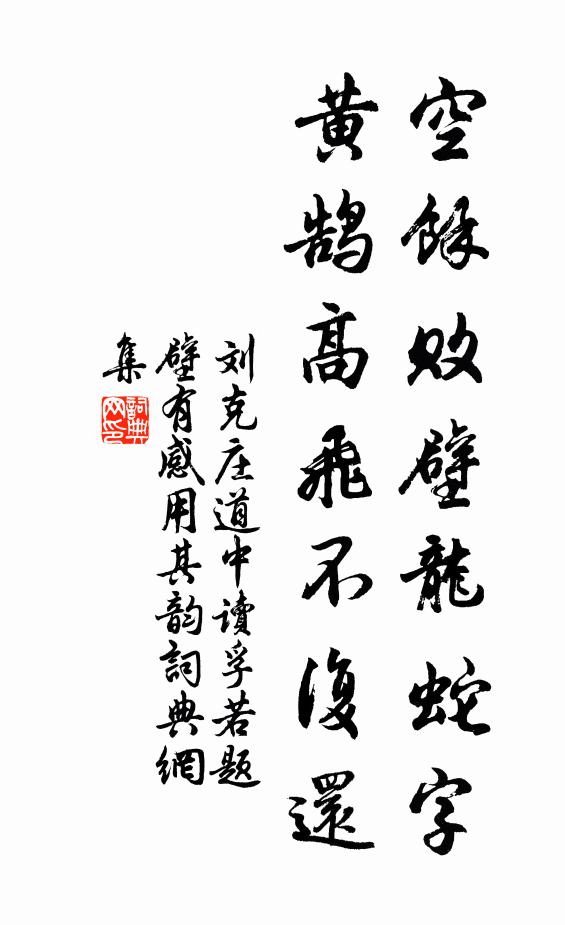 空餘敗壁龍蛇字
黃鹄高飛不復還
刘克庄道中讀孚若題
壁有感用其韵詞典網
集
詞典网印